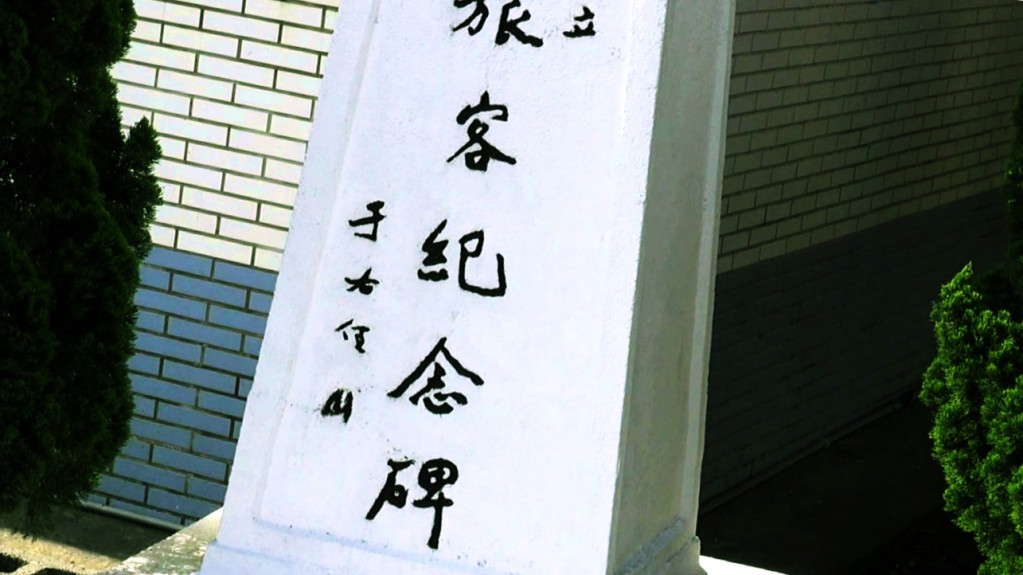 立
旅客紀念碑
于右任